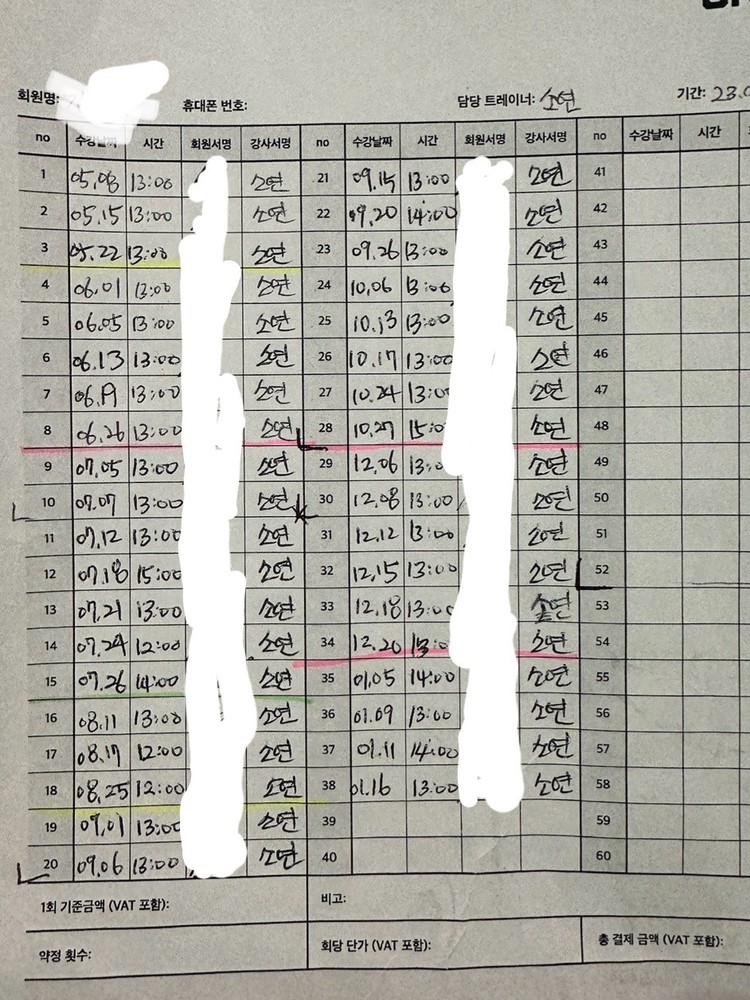 회원명: 휴대폰 번호: 담당 트레이너: 소연 기간: 23.0
no 수강날짜 시간 회원서명 강사서명 no 수강날짜 시간 회원서명 강사서명 no 수강날짜 시간
1 05.08 13:00 소연 21 09.15 13:00 소연 41
2 05.15 13:00 소연 22 09.20 14:00 소연 42
3 05.22 13:00 소연 23 09.26 13:00 소연 43
4 06.01 13:00 소연 24 10.06 13:00 소연 44
5 06.05 13:00 소연 25 10.13 13:00 소연 45
6 06.13 13:00 소연 26 10.17 13:00 소연 46
7 06.19 13:00 소연 27 10.24 13:00 소연 47
8 06.26 13:00 소연 28 10.27 15:0 소연 48
9 07.05 13:00 소연 29 12.06 13:0 소연 49
10 07.07 13:00 소연 30 12.08 13:00 소연 50
11 07.12 13:00 소연 31 12.12 13:00 소연 51
12 07.18 15:00 소연 32 12.15 13:00 소연 52
13 07.21 13:00 소연 33 12.18 13:00 소연 53
14 07.24 12:00 소연 34 12.20 13:0 소연 54
15 07.26 14:00 소연 35 01.05 14:00 소연 55
16 08.11 13:00 소연 36 01.09 13:00 소연 56
17 08.17 12:00 소연 37 01.11 14:00 소연 57
18 08.25 12:00 소연 38 01.16 13:00 소연 58
19 09.01 13:00 소연 39 59
20 09.06 13:00 소연 40 60
1회 기준금액 (VAT 포함): 비고:
약정 횟수: 회당 단가 (VAT 포함): 총 결제 금액 (VAT 포함):